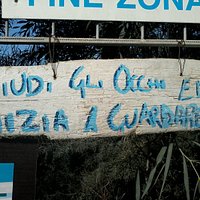 FINE ZONA
IUDI GLI OCCHI E
IZIA A GUARDARE